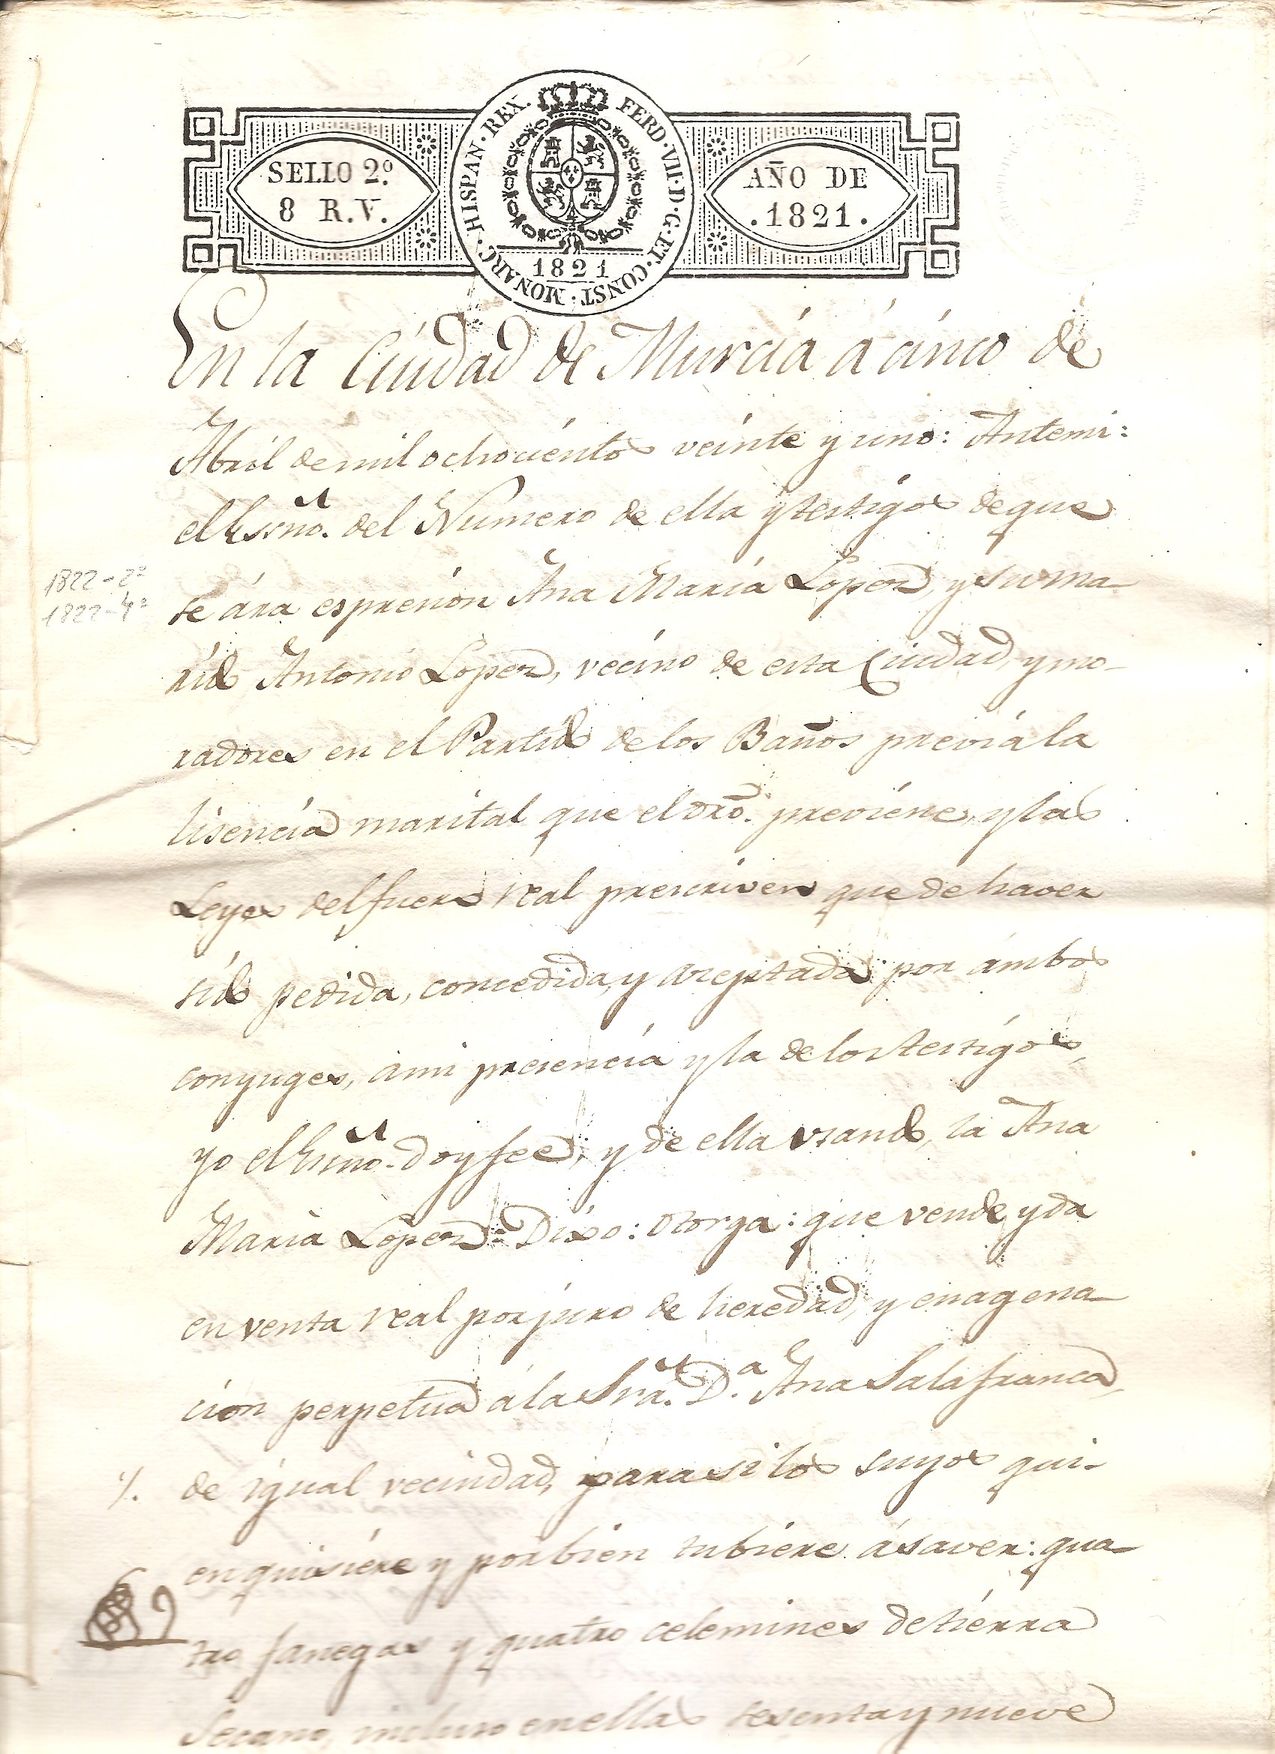 SELLO 2.º
8 R.V.
HISPAN · REX. FERD · VII · D · G · ET · CONST · MONARC ·
1821
AÑO DE
. 1821 .
En la Ciudad de Murcia á cinco de
Abril de mil ochociéntos veinte y uno: Antemi:
el Essño. del Numero de ella y testigos de que
se ára espresion Ana María Lopez, y su ma-
rido Antonio Lopez, vecino de esta Ciudad, y mo-
radores en el Partido de los Baños previá la
lisencia marital que el dro. previéne, y las
Leyes del fuero real prescriven que de haver
sido pedida, concedida, y aceptada por ámbos
conyuges, ami presencia y la de los testígos,
yo el Essño. doy fee, y de ella usando, la Ana
María Lopez = Dixo: Otorga: que vende y da
en venta real por juro de heredad, y enagena-
ción perpetua á la Sra. D.ª Ana Salafranca,
de igual vecindad, para si los suyos qui-
en quisiére y por bien tubiére á saver: qua-
tro fanegas y quatro celemines de tiérra
Secano, incluso en ellas sesenta y nueve
1822-2ª
1822-4ª